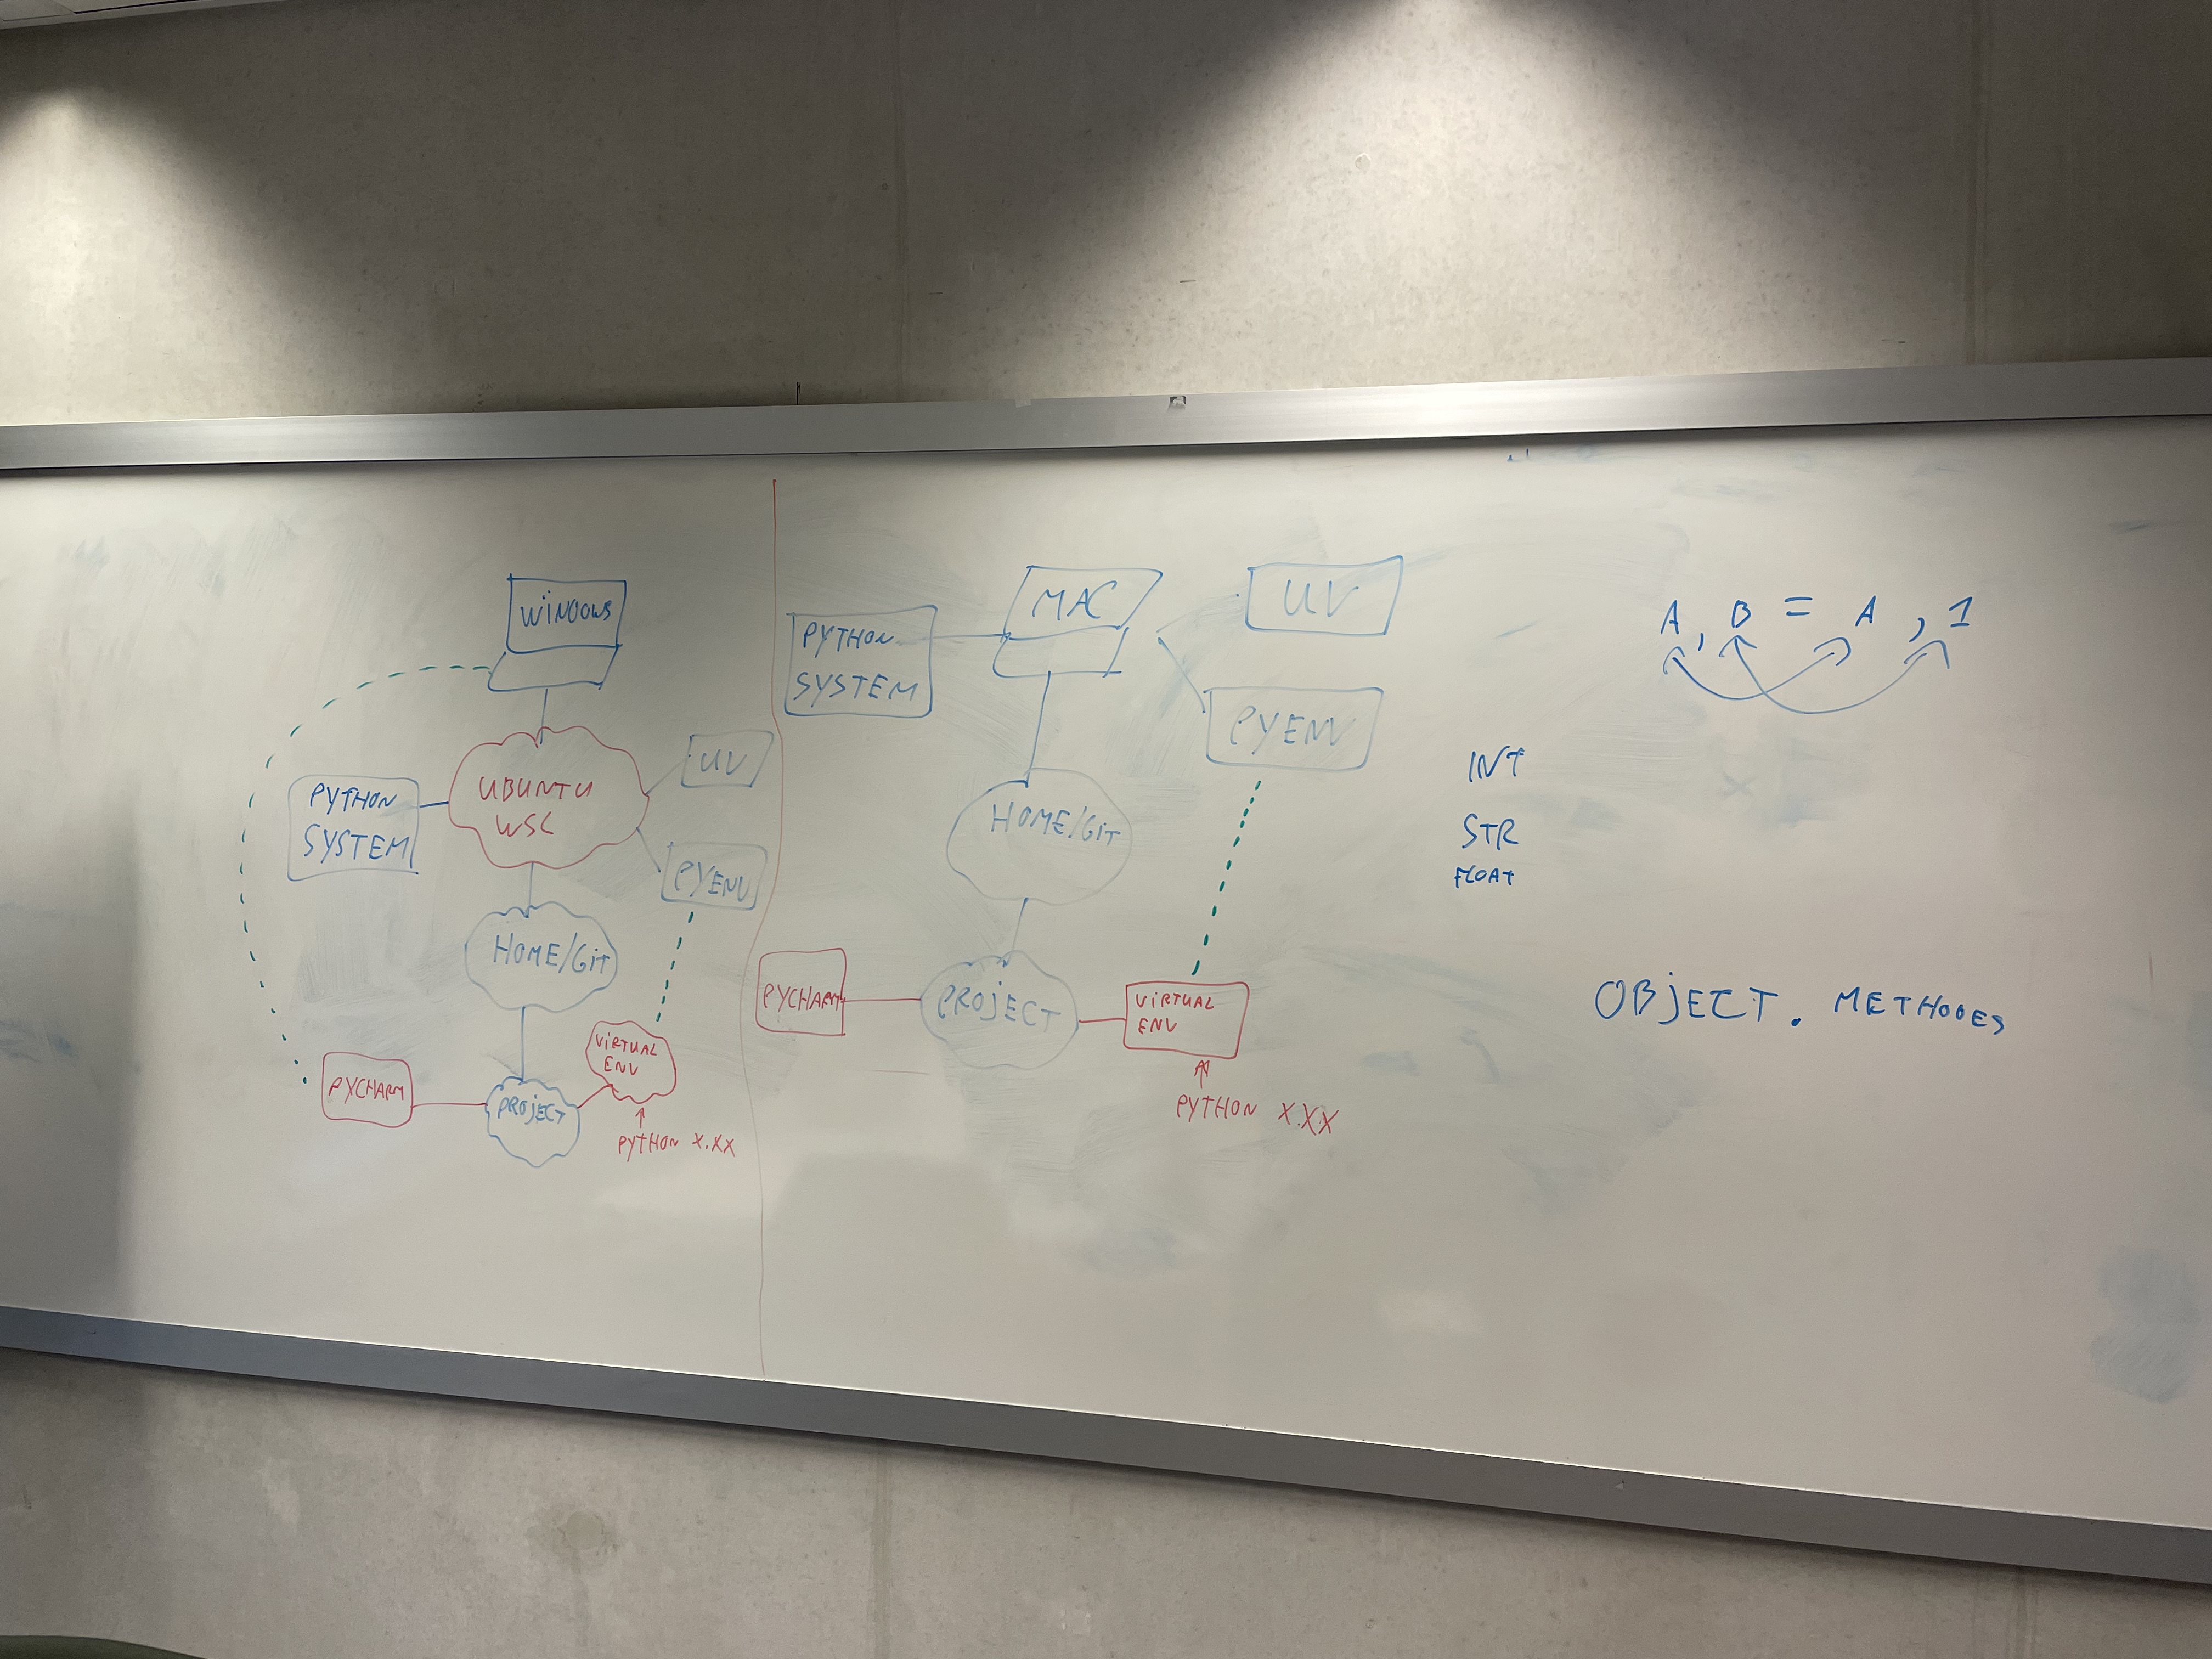 WINDOWS
UBUNTU
WSL
PYTHON
SYSTEM
UV
PYENV
HOME/GIT
VIRTUAL
ENV
PYCHARM
PROJECT
PYTHON X.XX
MAC
UV
PYTHON
SYSTEM
PYENV
HOME/GIT
PYCHARM
PROJECT
VIRTUAL
ENV
PYTHON X.XX
A, B = A, 1
INT
STR
FLOAT
OBJECT. METHODES